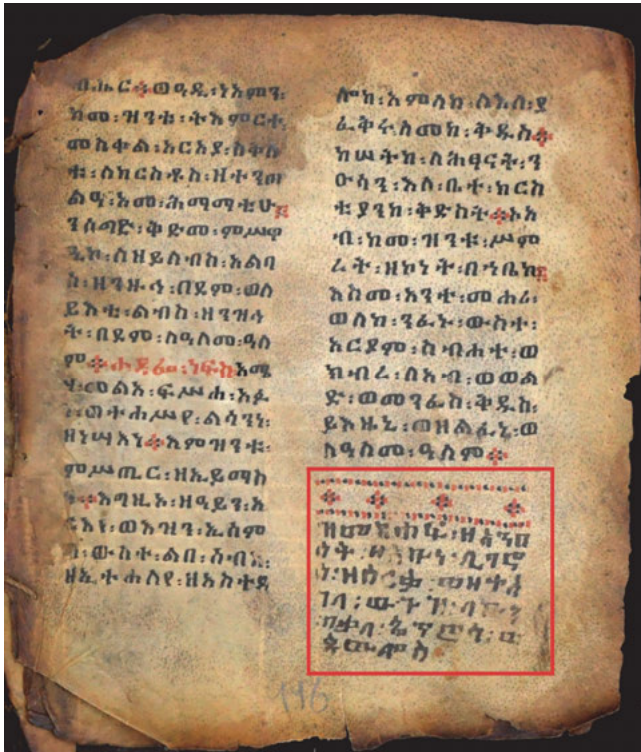 ብሔር፨ወዓዲ፡ነአምን፡
ከመ፡ዝንቱ፡ትእምርተ
መስቀል፡አርአያ፡ስቅለ
ቱ፡ለክርስቶስ፡ዘተንጦ
ልዓ፡አመ፡ሕማማቲሁ፤
ንሰግድ፡ቅድመ፡ምሥዋ
ዒኮ፡ለዘይለብስ፡አልባ
ሰ፡ዘንዙኅ፡በደም፡ወለ
ይእቲ፡ልብስ፡ዘንዝኅ
ት፡በደም፡ለዓለመ፡ዓለ
ም፨ሐዳፊሁ፡ነፍስ አሜ
ሃ፡መልአ፡ፍሥሐ፡አፉ
ነ፡ወተሐሥየ፡ልሳንነ፡
ዘነሣእነ፨እምዝንቱ፡
ምሥጢር፡ዘኢይማስ
ን፨እግዚአ፡ዘዓይን፡ኢ
ርእየ፡ወእዝን፡ኢሰም
ዐ፡ውስተ፡ልበ፡ሰብእ፡
ዘኢተሐለየ፡ዘአስተዳ
ሎከ፡አምላክ፡ለእለ፡ያ
ፈቅሩ፡ስመከ፡ቅዱስ፨
ከሠትከ፡ለሕፃናት፡ን
ዑሳን፡እለ፡ቤተ፡ክርስ
ቲያንከ፡ቅድስት፨ኦአ
ብ፡ከመ፡ዝንቱ፡ሥም
ረት፡ዘኮነት፡በኀቤከ፤
እስመ፡አንተ፡መሐሪ፡
ወለከ፡ንፌኑ፡ውስተ፡
አርያም፡ስብሐተ፡ወ
ክብረ፡ለአብ፡ወወል
ድ፡ወመንፈስ፡ቅዱስ፡
ይእዜኒ፡ወዘልፈኒ፡ወ
ለዓለመ፡ዓለም፨
ዝመጽሐፍ፡
146